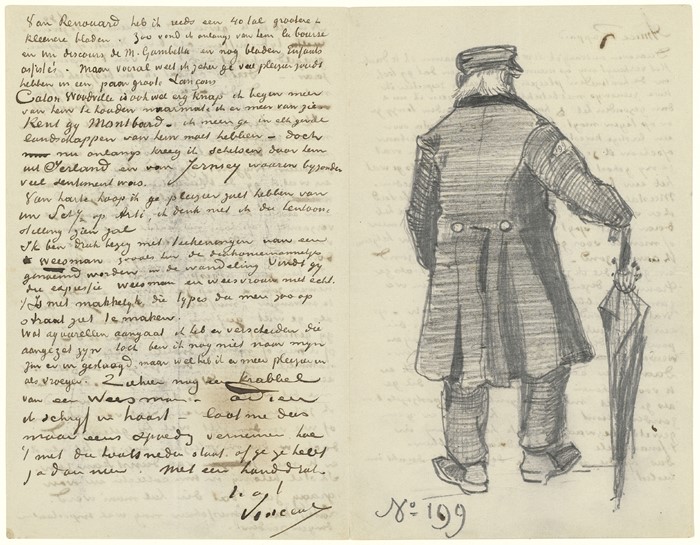 Van Renouard heb ik reeds een 40tal grootere &
kleinere bladen. Zoo vond ik onlangs van hem la bourse
en un discours de M. Gambetta en nog bladen Enfants
assistés. Maar vooral weet ik zeker ge veel pleizier zoudt
hebben in een paar groote Lançons
Caton Woodville is ook wel erg knap ik begin meer
van hem te houden naarmate ik er meer van zie
Kent gy Montbard. ik meen ge in elk geval
landschappen van hem moet hebben – doch
nu onlangs kreeg ik schetsen door hem
uit Ierland en van Jersey waarin byzonder
veel sentiment was.
Van harte hoop ik ge pleizier zult hebben van
uw op Arti, ik denk met ik die tentoon-
stelling zien zal
Ik ben druk bezig met teekeningen van een
weesman zooals hier de diakoniemannetjes
genoemd worden in de wandeling Vindt gy
die expressie weesman en weesvrouw niet echt.
't Is niet makkelyk, die types die men zoo op
straat ziet te maken.
Wat aquarellen aangaat ik heb er verscheiden die
aangezet zyn toch ben ik nog niet naar myn
zin er in geslaagd, maar wel heb ik er meer pleizier in
als vroeger. nog een Krabbel
van een Weesman – adieu
ik schryf in haast – laat me dus
maar eens spoedig vernemen hoe
't met die houtsneden staat, of ge ze hebt
ja dan neen Met een handdruk
t. à t
Vincent
No 199